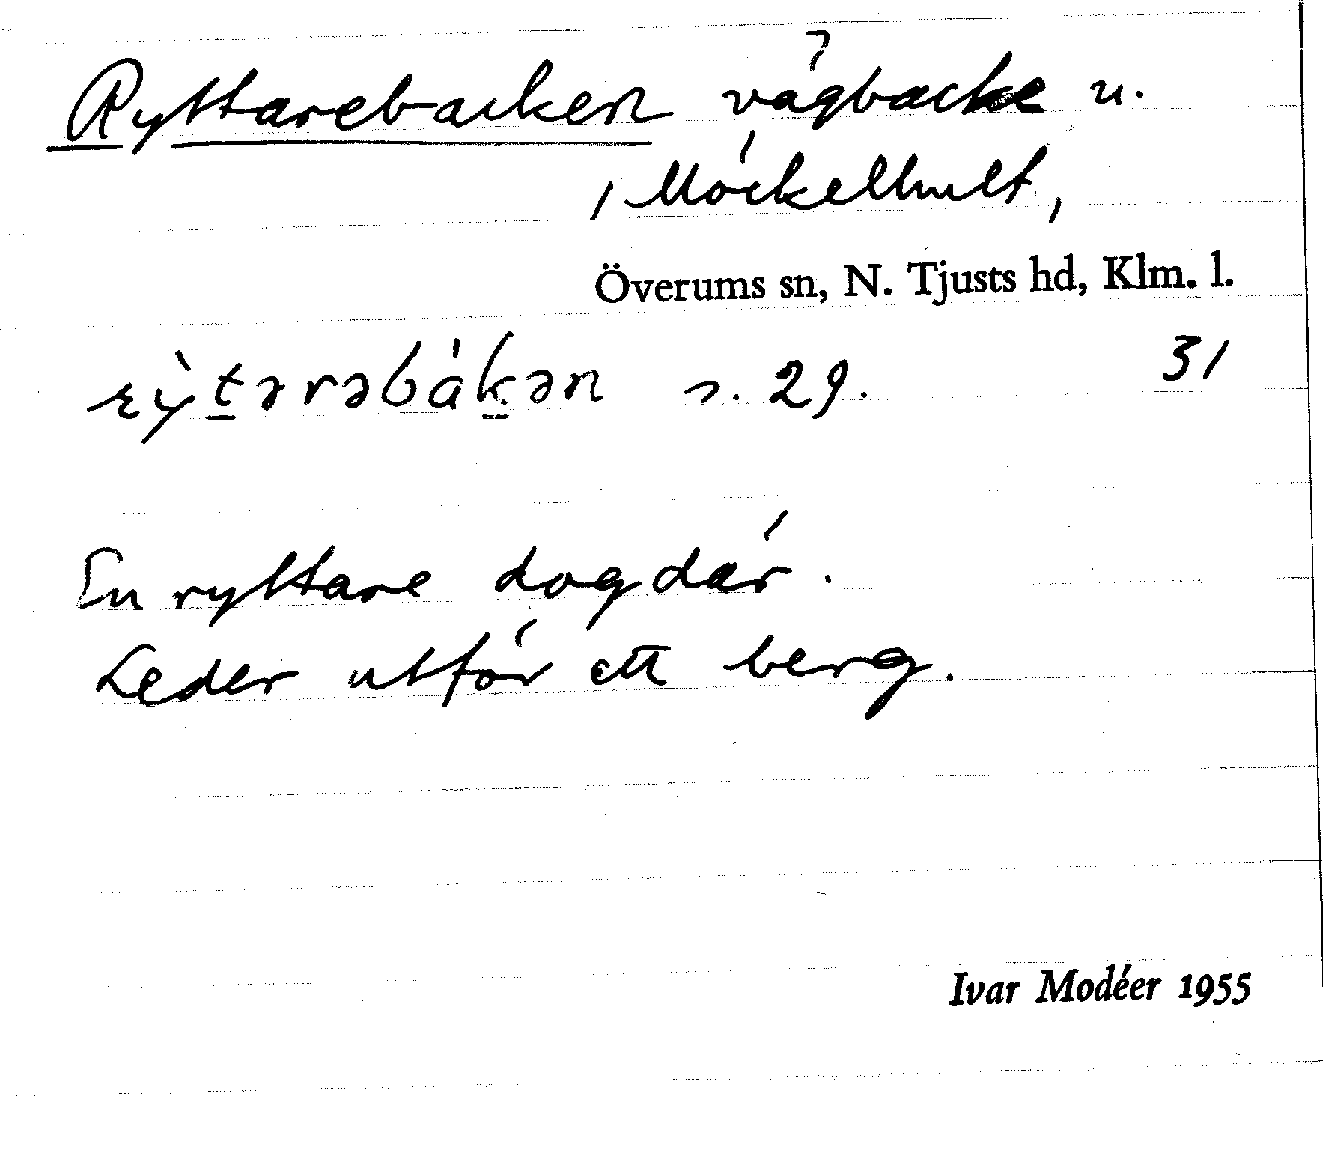 Ryttarebacken vägbacke u.
i Möckelhult,
Överums sn, N. Tjusts hd, Klm. l.
rỳt̲ərəbák̲ən s. 29. 31
En ryttare dog där.
Leder utför ett berg.
Ivar Modéer 1955